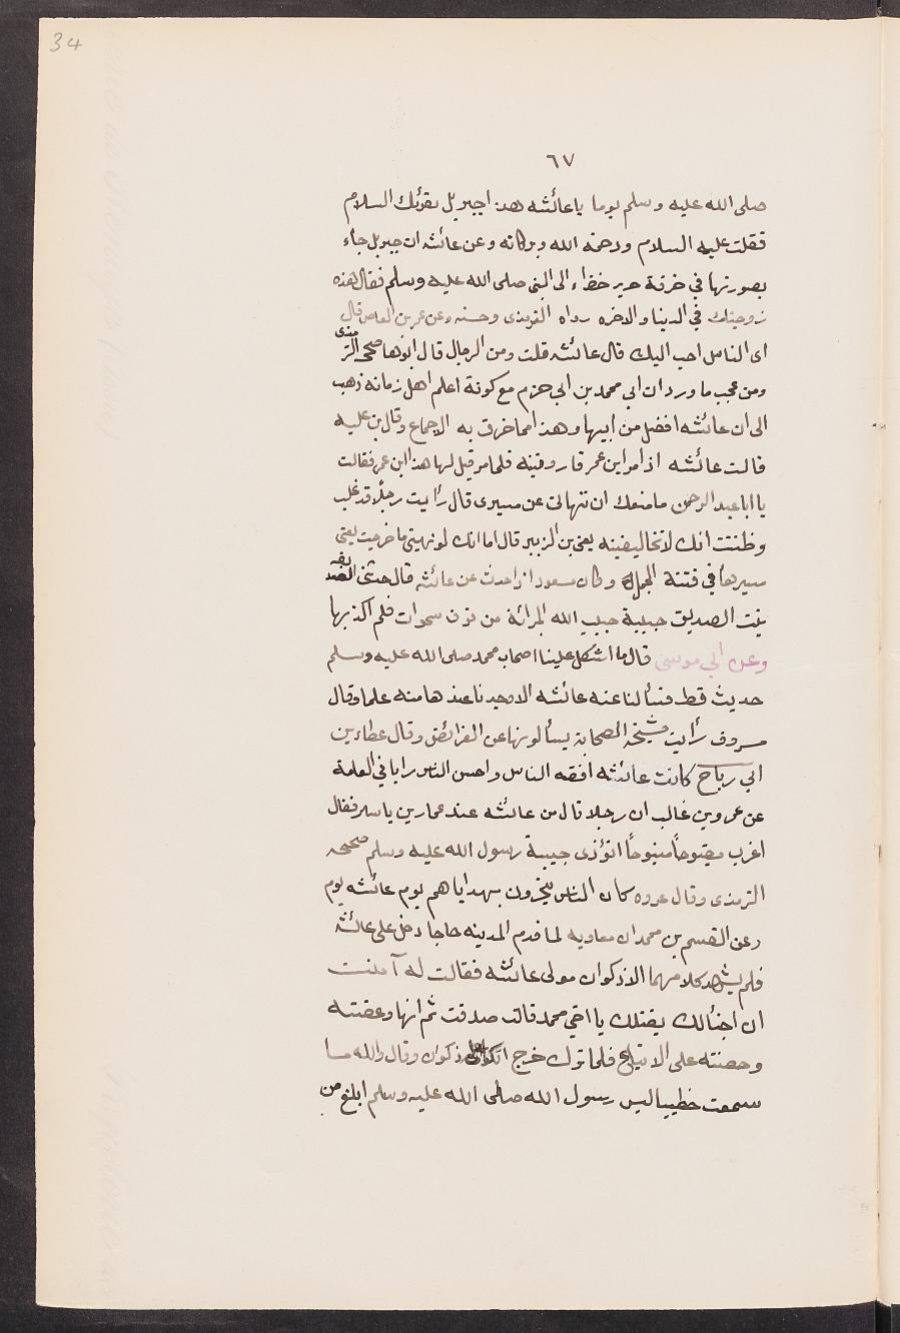 34
٦٧
صلى الله عليه وسلم يوما يا عائشه هذا جبريل يقرئك السلام
فقلت عليه السلام ورحمة الله وبركاته وعن عائشه ان جبريل جاء
بصورتها في خرقة حرير خضراء الى النبى صلى الله عليه وسلم فقال هذه
زوجتك في الدنيا والاخره رواه الترمذى وحسنه وعن عمر بن العاص قال
اى الناس احب اليك قال عائشه قلت ومن الرجال قال ابوها صححه الترمذى
ومن عجب ما ورد ان ابي محمد بن ابي حزم مع كونة اعلم اهل زمانه ذهب
الى ان عائشه افضل من ابيها وهذا مما خرق به الاجماع وقال بن عليه
قالت عائشه اذا مر ابن عمر فاروقينه فلما مر قيل لها هذا ابن عمر فقالت
يا ابا عبد الرحمن ما منعك ان تنهانى عن مسيرى قال رأيت رجلا قد غلب
وظننت انك لا تخاليفينه يعنى بن الزبير قال اما انك لو نهيتى ما خرجت يعنى
مسيرها في فتنة الجمل وكان مسعود اذا حدث عن عائشه قال حدثنى الصديقه
بنت الصديق حبيبة حبيب الله المبرائة من فوق سموات فلم اكذبها
وعن ابي موسى قال ما اشكل علينا اصحاب محمد صلى الله عليه وسلم
حديث قط فسألنا عنه عائشه الا وجدنا عندها منه علما وقال
مسروق رأيت مشيخة الصحابة يسألونها عن الفرائض وقال عطاء بن
ابي رباح كانت عائشه افقه الناس واحسن الناس رايا في العامة
عن عمر وبن غالب ان رجلا قال من عائشه عند عمار بن ياسر فقال
اغرب مقبوحاً منبوحاً اتؤذى حبيبة رسول الله عليه وسلم صححه
الترمذى وقال عروه كان الناس يتحرون بهداياهم يوم عائشه يوم
وعن القسم بن محمد ان معاويه لما قدم المدينه حاجا دخل على عائشه
فلم يشهد كلامهما الا ذكوان مولى عائشه فقالت له آ منت
ان اخبألك يقتلك يا اخي محمد قالت صدقت ثم انها وعضته
وحضته على الاتباع فلما ترك خرج ذكوان وقال والله ما
سمعت خطيبا ليس رسول الله صلى الله عليه وسلم ابلغ من